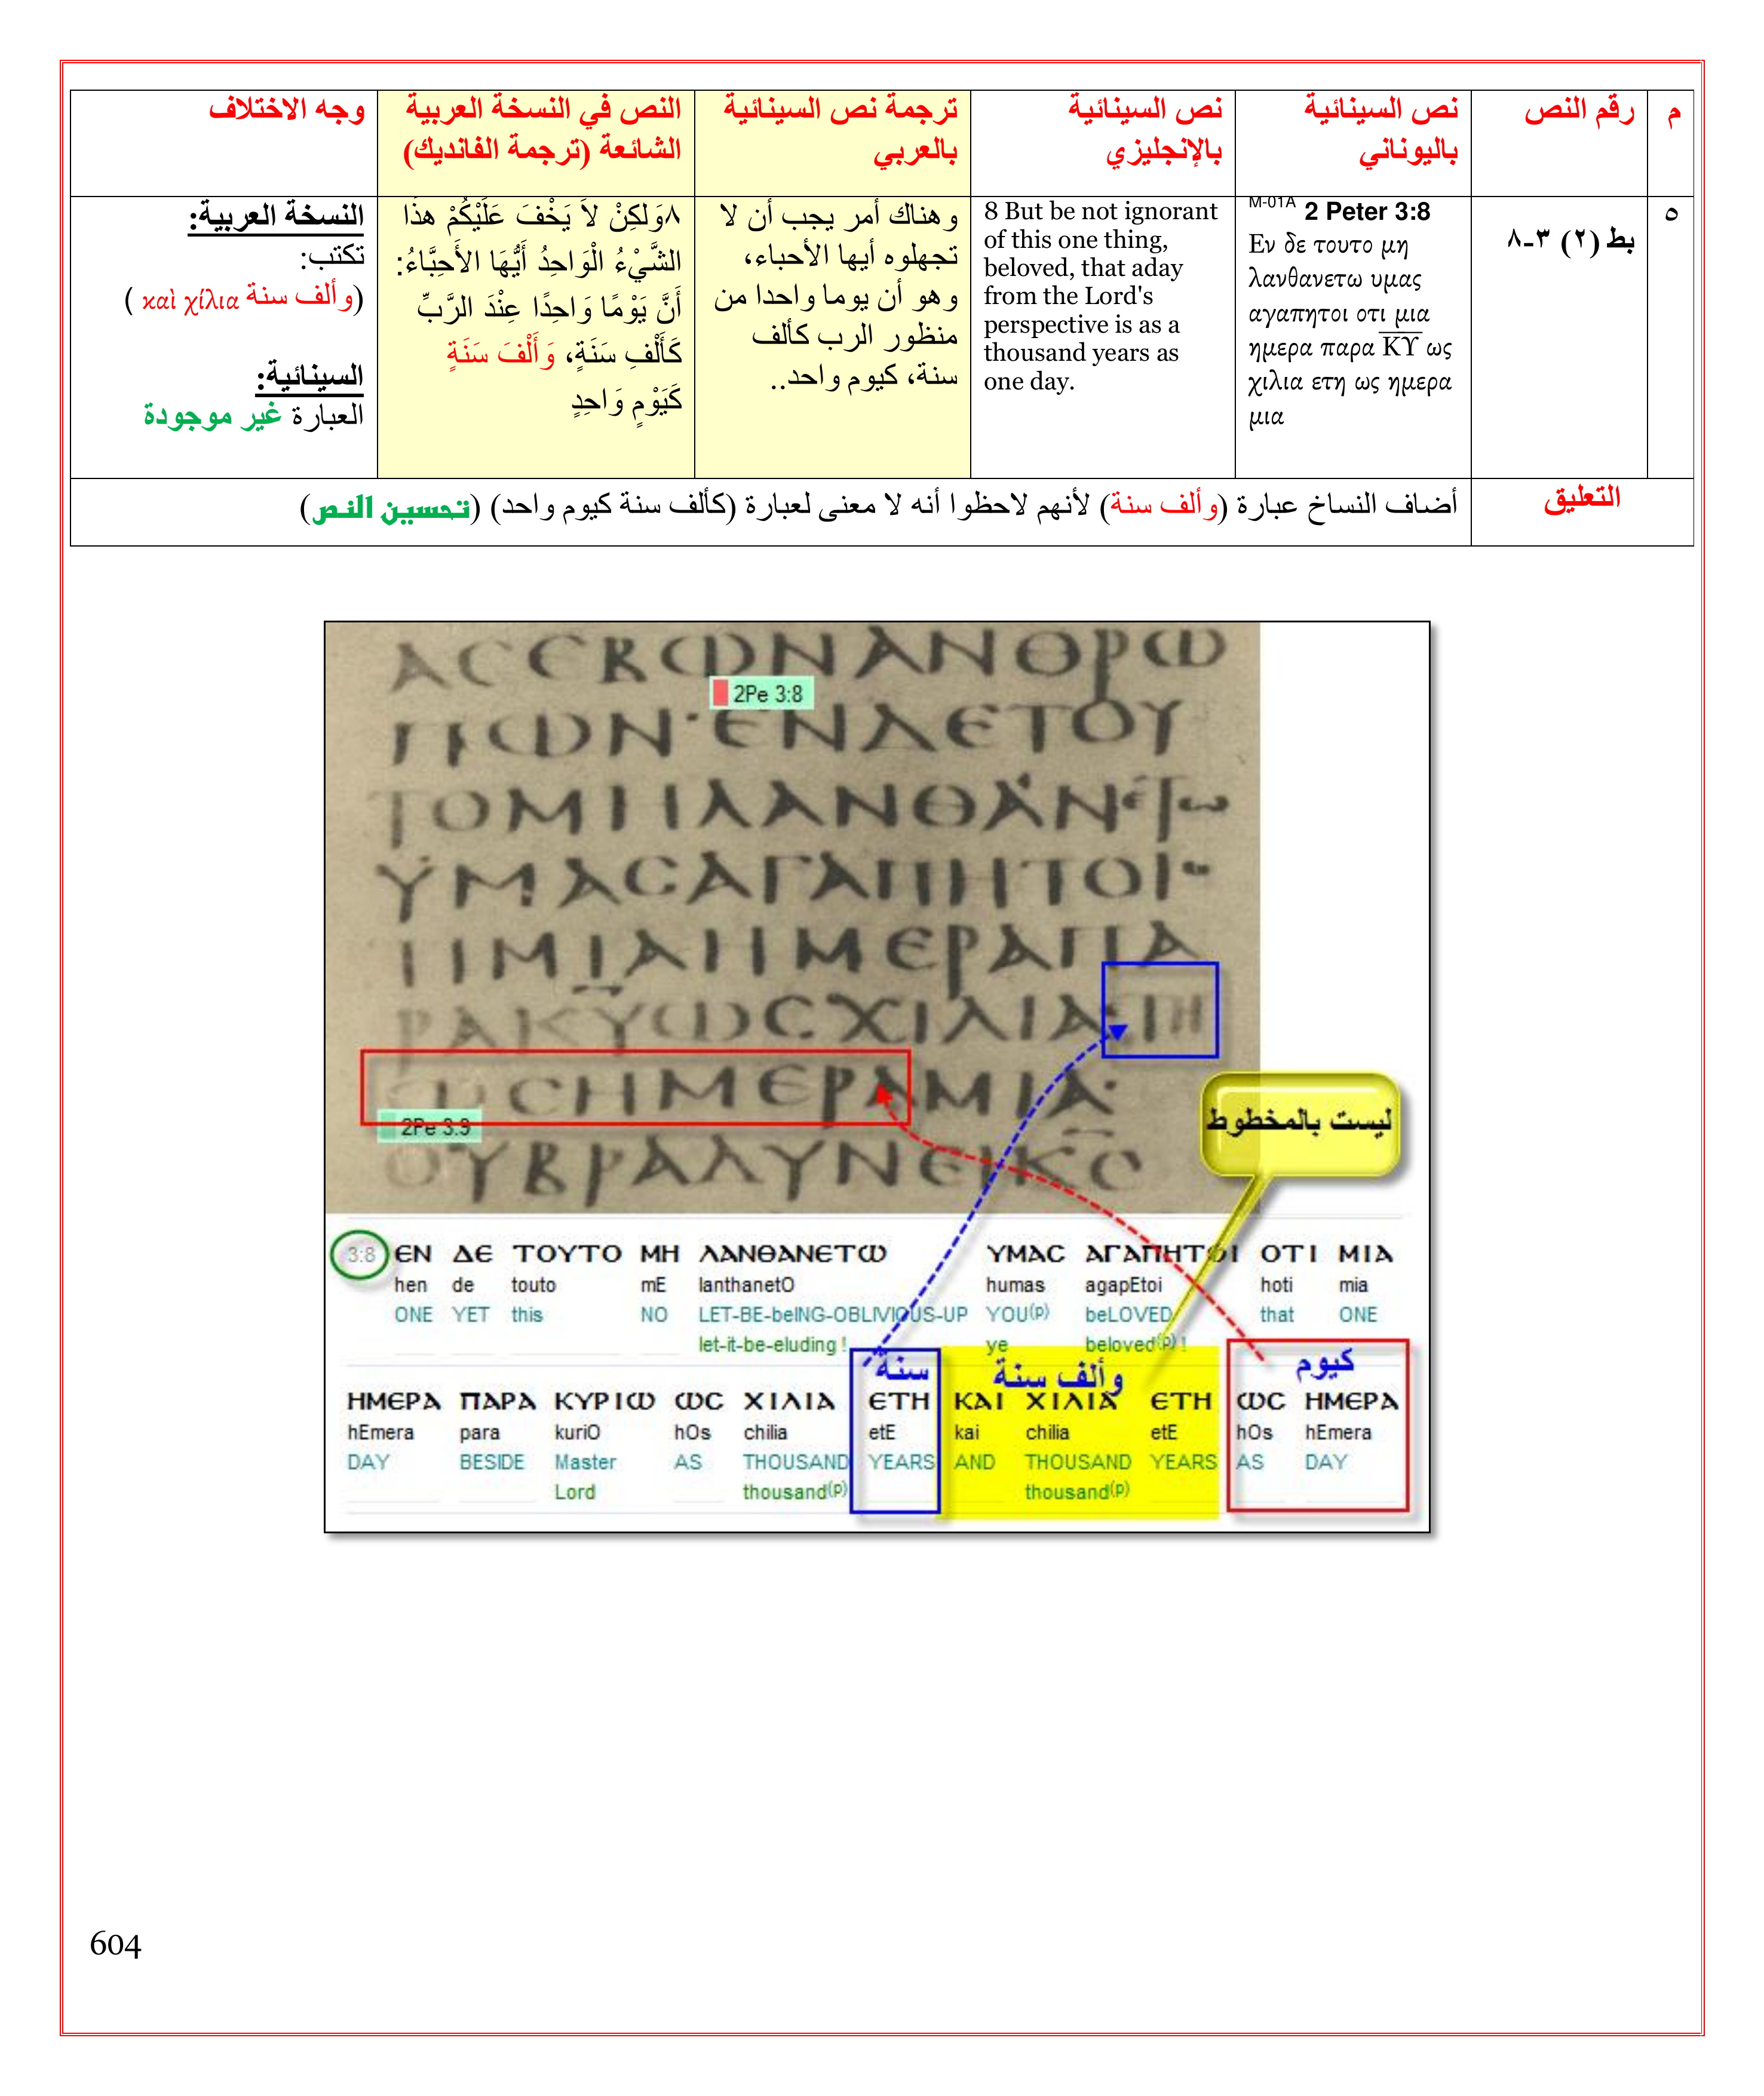 م
رقم النص
نص السينائية
باليوناني
نص السينائية
بالإنجليزي
ترجمة نص السينائية
بالعربي
النص في النسخة العربية
الشائعة (ترجمة الفانديك)
وجه الاختلاف
٥
بط (٢) ٣-٨
M-01A 2 Peter 3:8
Εν δε τουτο μη
λανθανετω υμας
αγαπητοι οτι μια
ημερα παρα ΚΥ ως
χιλια ετη ως ημερα
μια
8 But be not ignorant
of this one thing,
beloved, that aday
from the Lord's
perspective is as a
thousand years as
one day.
وهناك أمر يجب أن لا
تجهلوه أيها الأحباء،
وهو أن يوما واحدا من
منظور الرب كألف
سنة، كيوم واحد..
٨وَلكِنْ لاَ يَخْفَ عَلَيْكُمْ هذَا
الشَّيْءُ الْوَاحِدُ أَيُّهَا الأَحِبَّاءُ:
أَنَّ يَوْمًا وَاحِدًا عِنْدَ الرَّبِّ
كَأَلْفِ سَنَةٍ، وَأَلْفَ سَنَةٍ
كَيَوْمٍ وَاحِدٍ
النسخة العربية:
تكتب:
(وألف سنة καὶ χίλια )
السينائية:
العبارة غير موجودة
التعليق
أضاف النساخ عبارة (وألف سنة) لأنهم لاحظوا أنه لا معنى لعبارة (كألف سنة كيوم واحد) (تحسين النص)
ΑϹЄΒΩΝΑΝΘΡΩ
2Pe 3:8
ΠΩΝ·ЄΝΔЄΤΟΥ
ΤΟΜΗΛΑΝΘΑΝЄΤω
ΥΜΑϹΑΓΑΠΗΤΟΙ
ΤΙΜΙΑΗΜЄΡΑΠΑ
ΡΑΚΥΩϹΧΙΛΙΑЄΤΗ
ΩϹΗΜЄΡΑΜΙΑ·
2Pe 3:9
ΟΥΒΡΑΔΥΝЄΙΚϹ
ليست بالمخطوط
3:8 ЄΝ ΔЄ ΤΟΥΤΟ ΜΗ ΛΑΝΘΑΝЄΤΩ ΥΜΑϹ ΑΓΑΠΗΤΟΙ ΟΤΙ ΜΙΑ
hen de touto mE lanthanetO humas agapEtoi hoti mia
ONE YET this NO LET-BE-beING-OBLIVIOUS-UP YOU(p) beLOVED that ONE
let-it-be-eluding ! ye beloved(p) !
سنة وألف سنة كيوم
ΗΜЄΡΑ ΠΑΡΑ ΚΥΡΙΩ ΩϹ ΧΙΛΙΑ ЄΤΗ ΚΑΙ ΧΙΛΙΑ ЄΤΗ ΩϹ ΗΜЄΡΑ
hEmera para kuriO hOs chilia etE kai chilia etE hOs hEmera
DAY BESIDE Master AS THOUSAND YEARS AND THOUSAND YEARS AS DAY
Lord thousand(p) thousand(p)
604